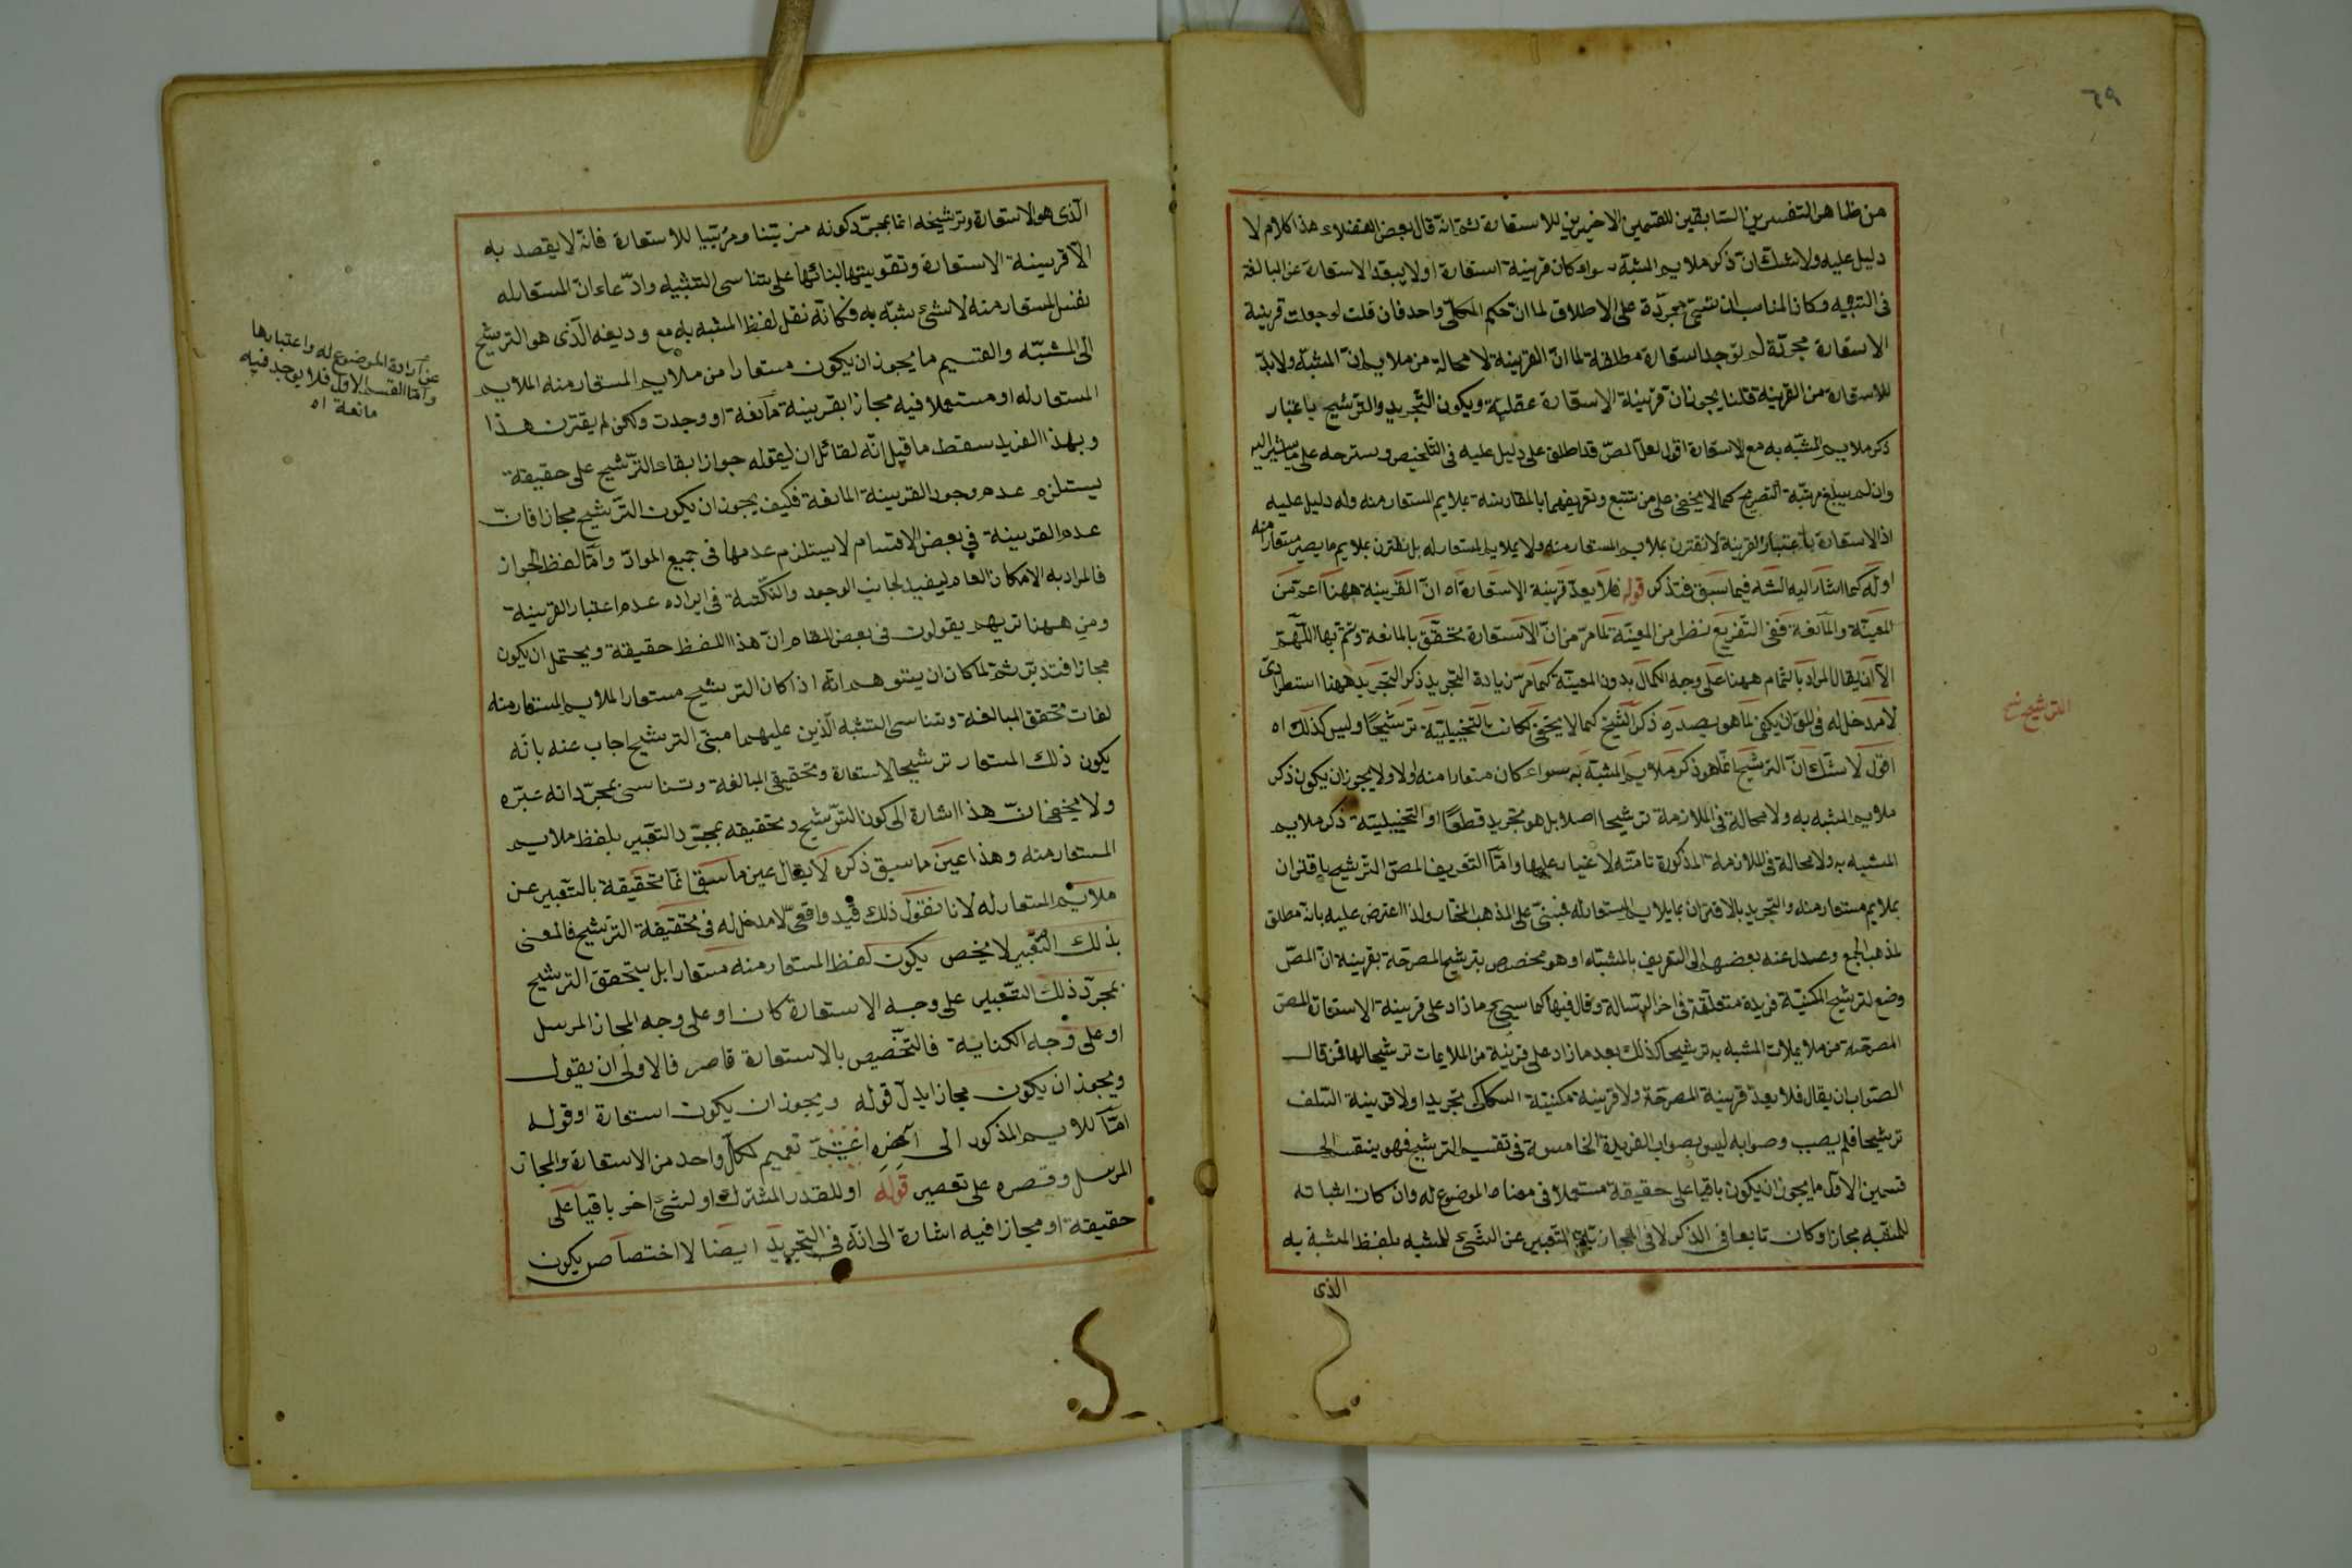 ٦٩
من ظاهر التفسرين السابقين للقسمين الاخيرين للاستعارة ثم انه قال بعض الفضلاء هذا كلام لا
دليل عليه ولا شك ان ذكر ملايم المشبه سواء كان قرينة استعارة اولا يبعد الاستعارة عن المبالغة
فى التشبيه وكان المناسب ان تسمى مجردة على الاطلاق لما ان حكم الكل واحد فان قلت لو جعلت قرينة
الاستعارة مجردة لم يوجد استعارة مطلقة لما ان القرينة لا محالة من ملايم المشبه ولا بد
للاستعارة من القرينة قلنا يجوز ان قرينة الاستعارة عقلية ويكون التجريد والترشيح باعتبار
ذكر ملايم المشبه به مع الاستعارة اقول لعل المص قد اطلق على دليل عليه فى التلخيص وسترحه على ما يشير اليه
وان لم يبلغ مرتبة التصريح كما لا يخفى على من تتبع وتعريفهما بالمقارنة بملايم المستعار منه وله دليل عليه
اذ الاستعارة باعتبار القرينة لا تقترن بملايم المستعار منه ولا بملايم المستعار له بل تقترن بملايم ما يصير مستعارا منه
اوله كما اشار اليه الشه فيما سبق فتذكر قوله فلا يعد قرينة الاستعارة اه ان القرينة ههنا اعم من
المعينة والمانعة ففى التفريع نظر من المعينة لما مر من ان الاستعارة تتحقق بالمانعة وتتم بها اللهم
الا ان يقال المراد بالتمام ههنا على وجه الكمال بدون المعينة كما مر زيادة التجريد ذكر التجريد ههنا استطرادى
لا مدخل له فى اللوان يكفى لما هو بصدره ذكر الشيخ كما لا يخفى كانت التخييلية ترشيحا وليس كذلك اه
اقول لا شك ان الترشيح انما هو ذكر ملايم المشبه به سواء كان مستعارا منه اولا ولا يجوز ان يكون ذكر
ملايم المشبه به ولا محالة فى الملازمة ترشيحا اصلا بل هو تجريد قطعا او التخييلية ذكر ملايم
المشبه به ولا محالة فى الملازمة المذكورة تامته لا غبار عليها واما التعريف المص الترشيح باقتران
بملايم مستعار منه والتجريد بالاقتران بما يلايم المستعار له فبنى على المذهب المختار ولذا اعترض عليه بانه مطلق
لمذهب الجمع وعدل عنه بعضهم الى التعريف بالمشبه او هو مخصوص بترشيح المصرحة بقرينة ان المص
وضع لترشيح المكنية فريدة متعلقة فى اخر الرسالة وقال فيها كما سيجئ ما زاد على قرينة الاستعارة المص
المصرحة من ملايمات المشبه به ترشيحا كذلك بعد ما زاد على قرينة من الملايمات ترشيحا لها فمن قال
الصواب ان يقال فلا يعد قرينة المصرحة ولا قرينة مكنية السكاكى تجريدا ولا قرينة السلف
ترشيحا فلم يصب وصوابه ليس بصواب الفريدة الخامسة فى تقسيم الترشيح فهو ينقسم الى
قسمين الاول ما يجوز ان يكون باقيا على حقيقة مستعملا فى معناه الموضوع له وان كان اثباته
للمشبه مجازا وكان تابعا فى الذكر لا فى المجازية التعبير عن الشئ المشبه بلفظ المشبه به
الذى
الترشيح نسخ
الذى هو الاستعارة وترشيحه انما بمجرد كونه مزينا ومرتبا للاستعارة فانه لا يقصد به
الا قرينة الاستعارة وتقويتها لبنائها على تناسى التشبيه وادعاء ان المستعار له
نفس المستعار منه لا شئ شبه به فكانه نقل لفظ المشبه به مع ودیعه الذى هو الترشيح
الى المشبه والقسيم ما يجوز ان يكون مستعارا من ملايم المستعار منه الملايم
المستعار له او مستعملا فيه مجازا بقرينة مانعة او وجدت ولكن لم يقترن هذا
وبهذا الفريد سقط ما قيل انه لقائل ان يقوله جواز ابقاء الترشيح على حقيقة
يستلزم عدم وجود القرينة المانعة فكيف يجوز ان يكون الترشيح مجازا فان
عدم القرينة فى بعض الاقسام لا يستلزم عدمها فى جميع المواد واما لفظ الجواز
فالمراد به الامكان العام ليفيد لجانب الوجود والنكتة فى ايراده عدم اعتبار القرينة
ومن ههنا تريهم يقولون فى بعض المقام ان هذا اللفظ حقيقة ويحتمل ان يكون
مجازا فتدبر ثم لما كان ان يتوهم انه اذا كان الترشيح مستعارا الملايم المستعار منه
لفات تحقق المبالغة وتناسى التشبه الذين عليهما مبنى الترشيح اجاب عنه بانه
يكون ذلك المستعار ترشيحا لاستعارة وتحقيق المبالغة وتناسى بمجرد انه عبره
ولا يخفى ان هذا اشارة الى كون الترشيح وتحقيقه بمجرد التعبير بلفظ ملايم
المستعار منه وهذا عين ما سبق ذكره لا يقال عين ما سبق انما تحقيقة بالتعبير عن
ملايم المستعار له لانا نقول ذلك قيد واقعى لا مدخل له فى تحقيقة الترشيح فالمعنى
بذلك التعبير لا يخص يكون لفظ المستعار منه مستعارا بل يتحقق الترشيح
بمجرد ذلك التعبير على وجه الاستعارة كان او على وجه المجاز المرسل
او على وجه الكناية فالتخصيص بالاستعارة قاصر فالاولى ان يقول
ويجوز ان يكون مجازا بدل قوله ويجوز ان يكون استعارة او قوله
اما لملايم المذكور الى اخره تعميم لكل واحد من الاستعارة والمجاز
المرسل وقصره على تقصير قوله او للقدر المشترك او لشئ اخر باقيا على
حقيقة او مجازا فيه اشارة الى انه فى التجريد ايضا لا اختصاص يكون
عن ارادة الموضوع له واعتبارها
واما القسم الاول فلا يوجد فيه
مانعة اه